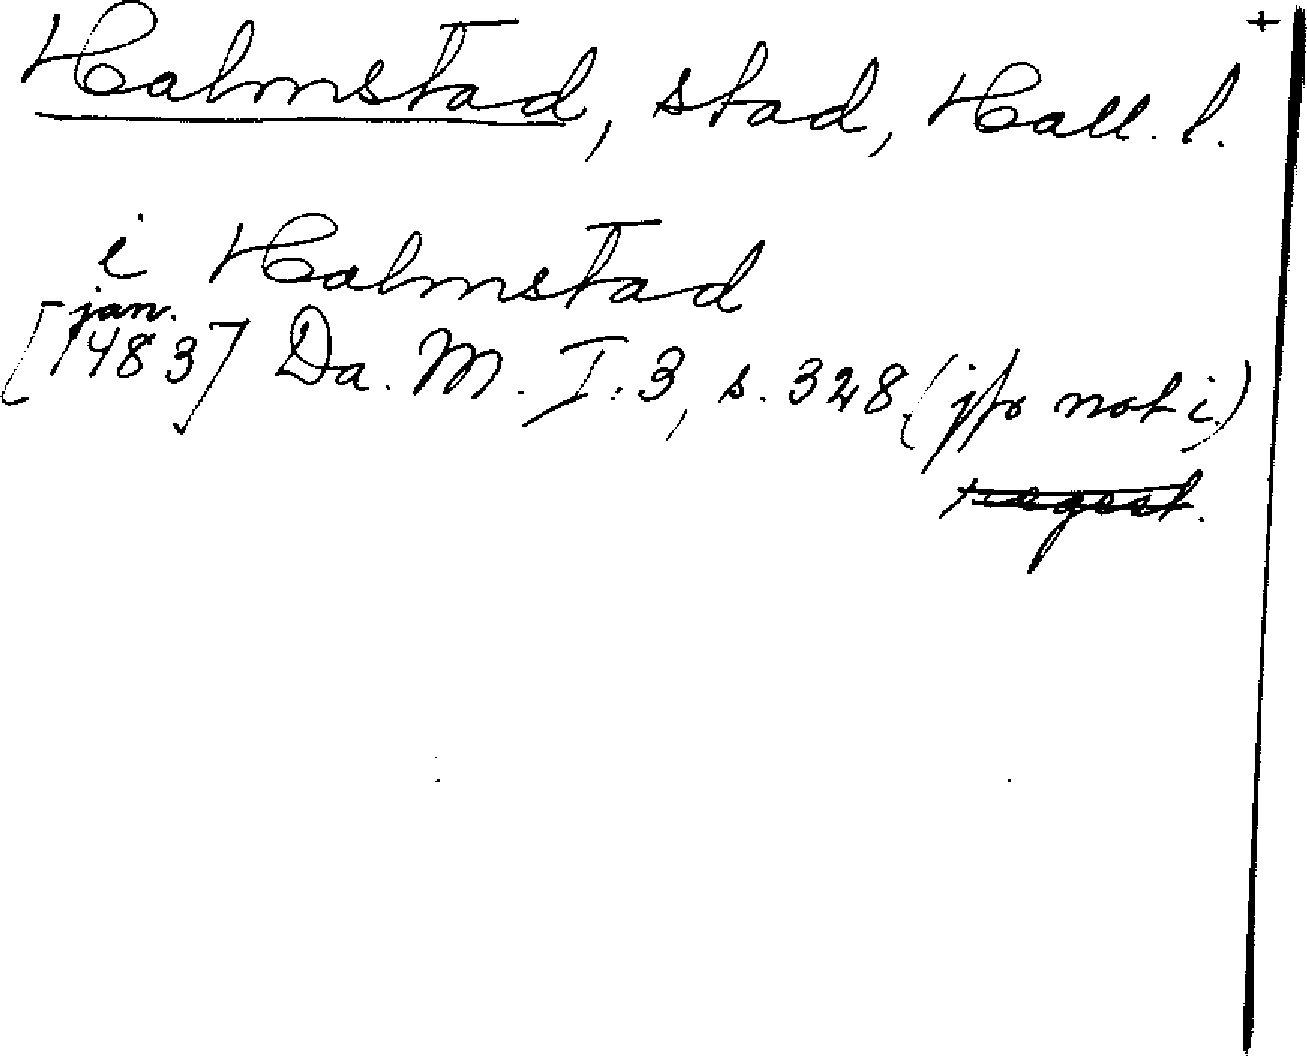 Halmstad, stad, Hall. l. +
i Halmstad
jan.
[1483] Da. M. I: 3, s. 328 (jfr not i)
regest.